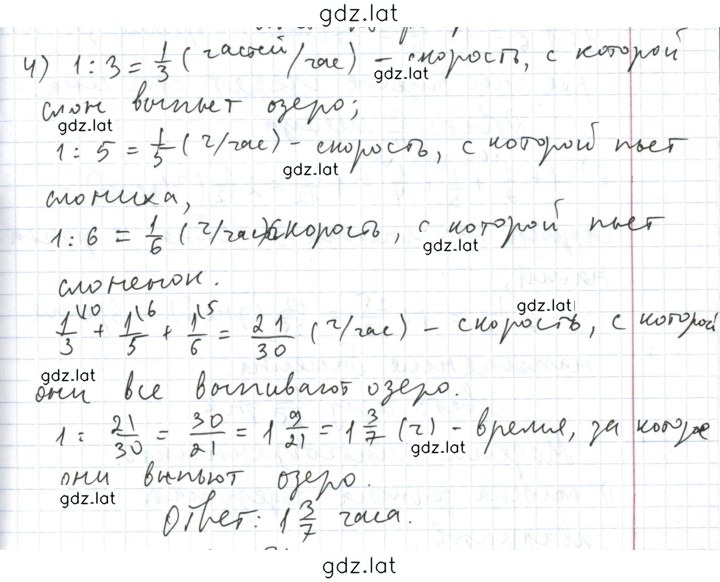 gdz.lat
4) 1 : 3 = 1/3 (частей/час) - скорость, с которой
gdz.lat
слон выпьет озеро;
gdz.lat
1 : 5 = 1/5 (ч/час) - скорость, с которой пьет
gdz.lat
слониха,
1 : 6 = 1/6 (ч/час) скорость, с которой пьет
gdz.lat
слоненок.
gdz.lat
1/3 \10 + 1/5 \6 + 1/6 \5 = 21/30 (ч/час) - скорость, с которой
gdz.lat
они все выпивают озеро.
1 : 21/30 = 30/21 = 1 9/21 = 1 3/7 (ч) - время, за которое
gdz.lat
они выпьют озеро.
gdz.lat
Ответ: 1 3/7 часа.
gdz.lat